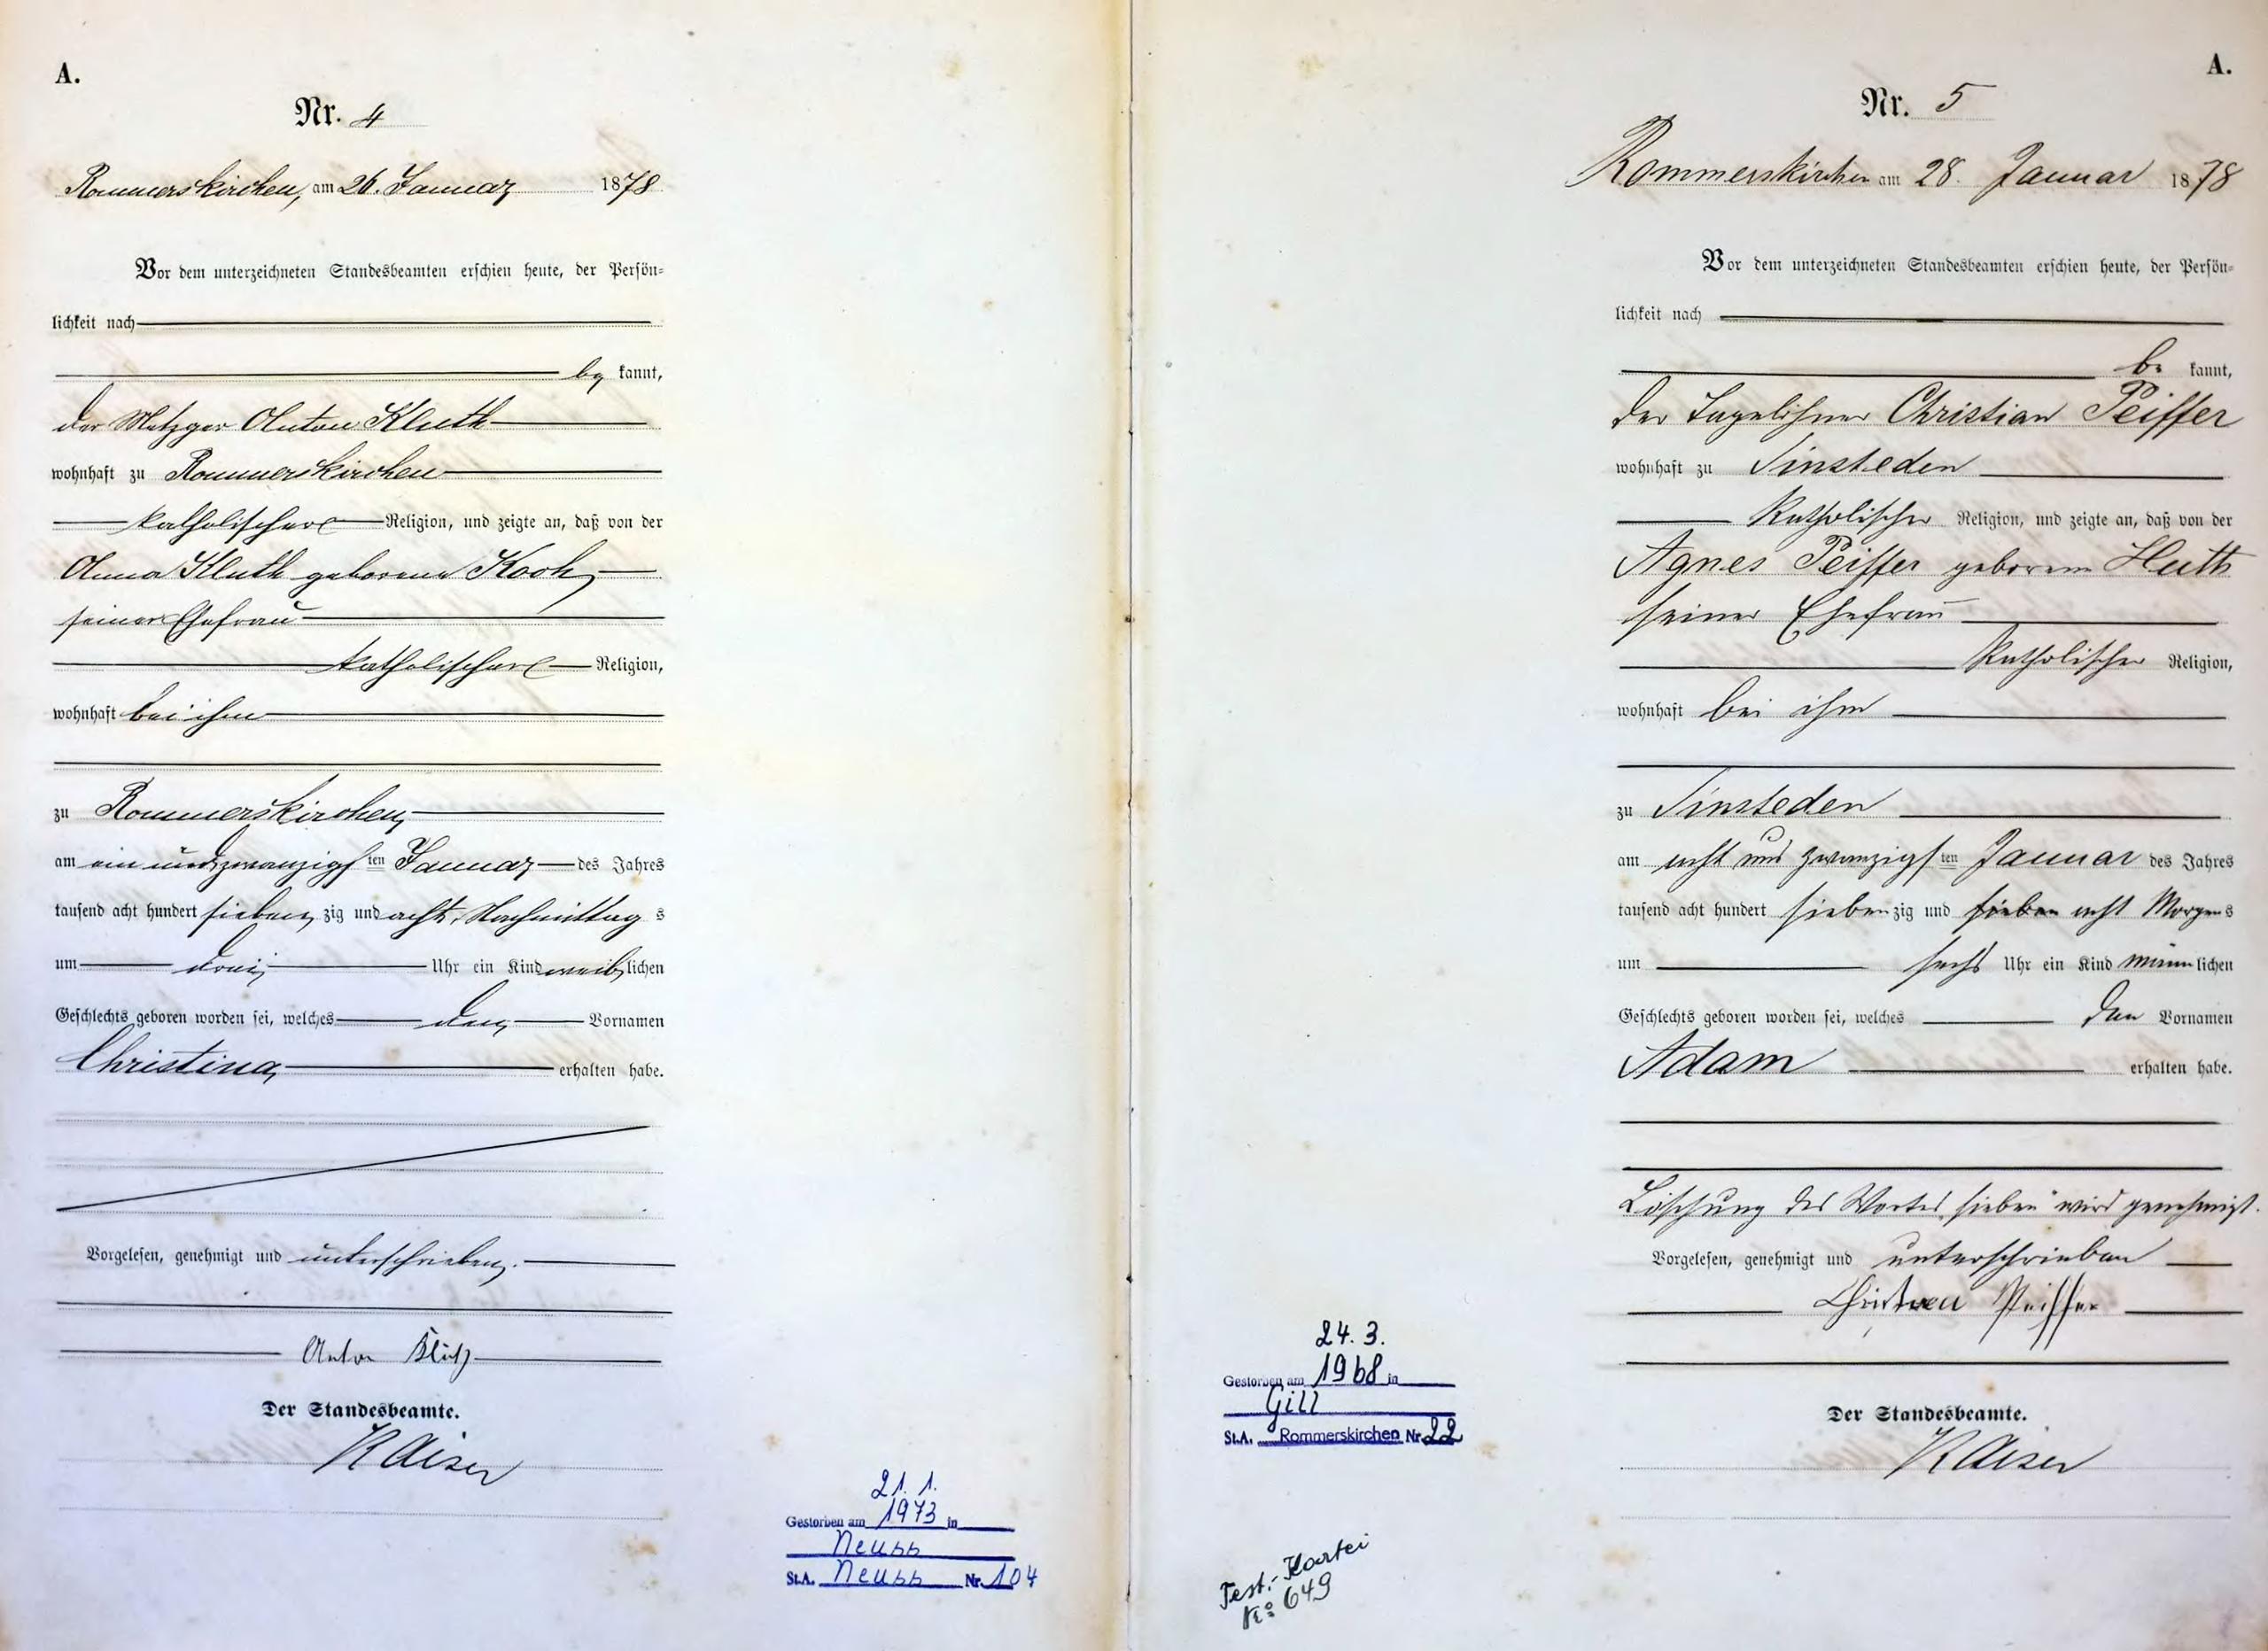 A.
Nr. 4
Rommerskirchen, am 26. Januar 1878
Vor dem unterzeichneten Standesbeamten erschien heute, der Persön-
lichkeit nach
be kannt,
der Metzger Anton Kluth
wohnhaft zu Rommerskirchen
katholischer Religion, und zeigte an, daß von der
Anna Kluth geborene Koch,
seiner Ehefrau
katholischer Religion,
wohnhaft bei ihm
zu Rommerskirchen,
am ein und zwanzigsten Januar des Jahres
tausend acht hundert siebenzig und acht, Nachmittags
um drei Uhr ein Kind weiblichen
Geschlechts geboren worden sei, welches den Vornamen
Christina, erhalten habe.
Vorgelesen, genehmigt und unterschrieben.
Anton
Der Standesbeamte.
Kaiser
21. 1.
Gestorben am 1973 in
Neuss
St.A. Neuss Nr. 104
A.
Nr. 5
Rommerskirchen am 28. Januar 1878
Vor dem unterzeichneten Standesbeamten erschien heute, der Persön-
lichkeit nach
be kannt,
der Tagelöhner Christian Peiffer
wohnhaft zu Sinsteden
katholischer Religion, und zeigte an, daß von der
Agnes Peiffer geborene Huth
seiner Ehefrau
katholischer Religion,
wohnhaft bei ihm
zu Sinsteden
am acht und zwanzigsten Januar des Jahres
tausend acht hundert siebenzig und sieben acht Morgens
um sechs Uhr ein Kind männlichen
Geschlechts geboren worden sei, welches den Vornamen
Adam erhalten habe.
Löschung des Wortes „sieben" wird genehmigt.
Vorgelesen, genehmigt und unterschrieben
Christian Peiffer
Der Standesbeamte.
Kaiser
24. 3.
Gestorben am 1968 in
Gill
St.A. Rommerskirchen Nr. 22
Test.-Kartei
No 649